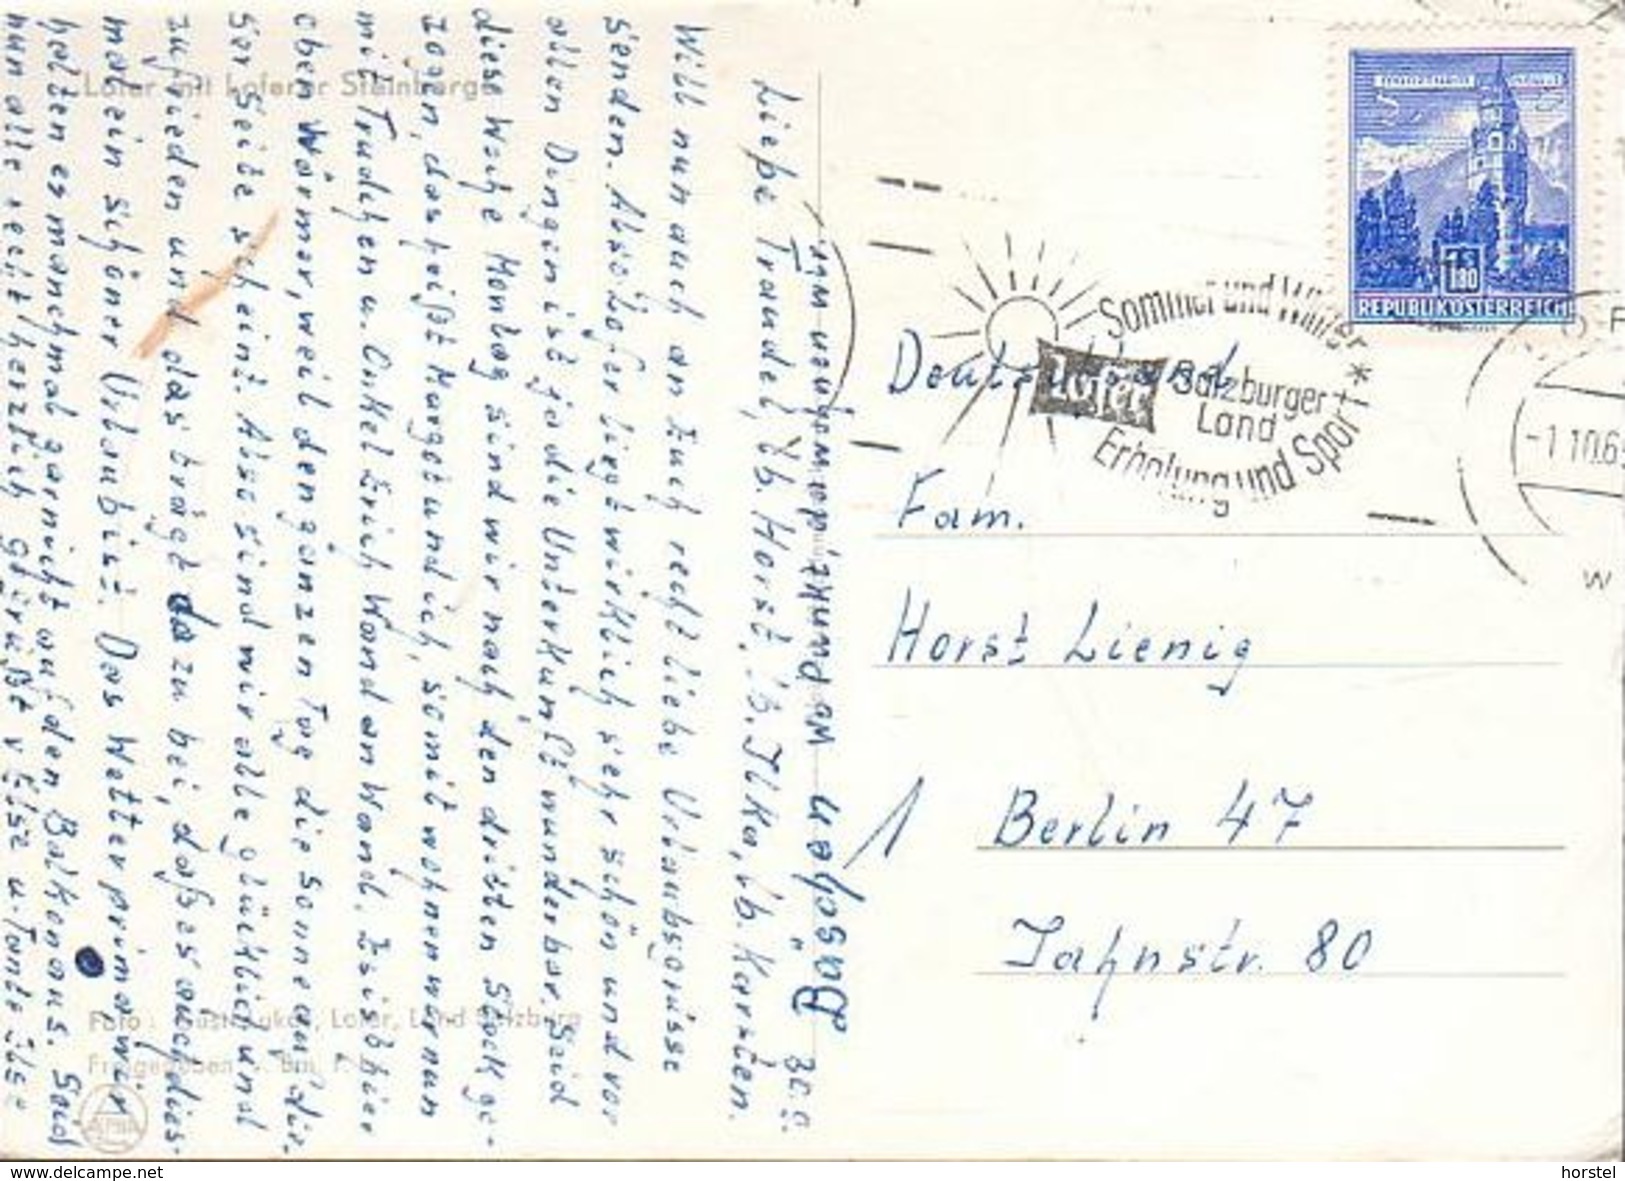 Lofer mit Loferer Steinberge
30.9.
Liebe Traudel, lb. Horst, lb. Ilka, lb. Karsten.
Will nun auch an Euch recht liebe Urlaubsgrüsse
senden. Also Lofer liegt wirklich sehr schön und vor
allen Dingen ist ja die Unterkunft wunderbar. Seid
diese Woche Montag sind wir nach den dritten Stock ge-
zogen, das heißt Margot und ich, somit wohnen wir nun
mit Trudchen u. Onkel Erich Wand an Wand. Es ist hier
oben wärmer, weil den ganzen Tag die Sonne auf die-
ser Seite scheint. Also sind wir alle glücklich und
zufrieden und das trägt dazu bei, daß es auch dies-
mal ein schöner Urlaub ist. Das Wetter prima, wir
halten es manchmal garnicht auf den Balkon aus. Seid
nun alle recht herzlich gegrüßt v. Else u. Tante Else
Foto: Lofer, Land Salzburg
Freigegeben v. Bm. f.
REPUBLIK ÖSTERREICH
S 1.80
Sommer und Winter *
Lofer
Salzburger
Land
Erholung und Sport
-1.10.6
Deutschland
Fam.
Horst Lienig
1 Berlin 47
Jahnstr. 80
www.delcampe.net
horstel